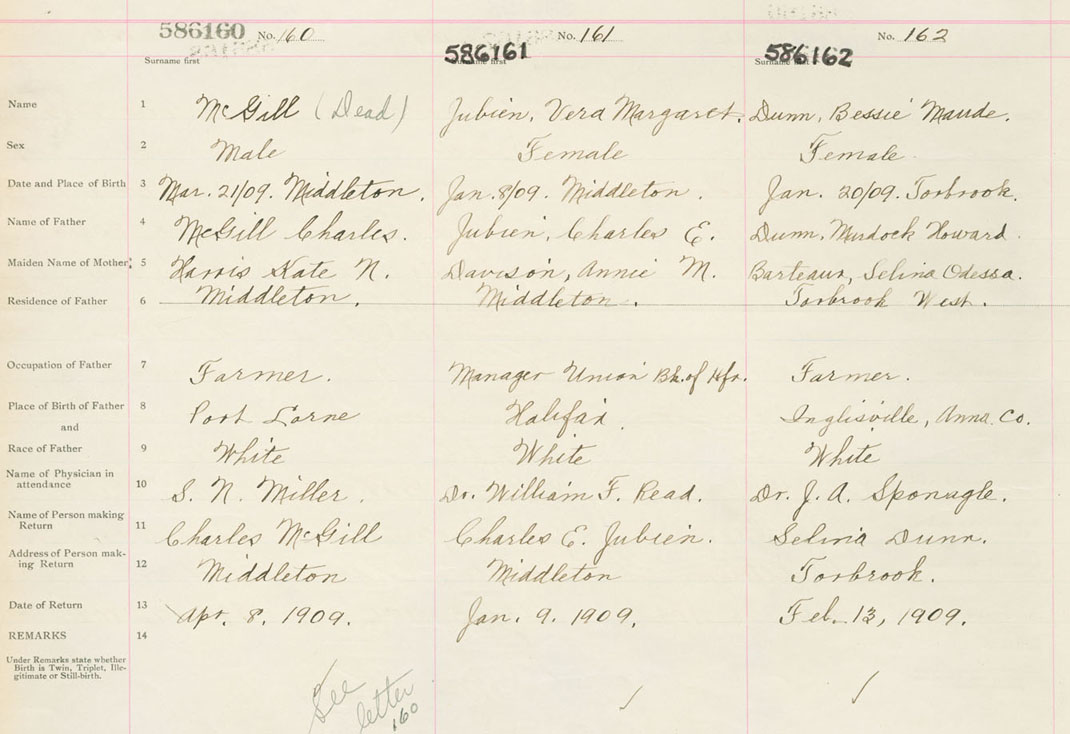 586160 No. 160
586161 No. 161
586162 No. 162
Surname first
Surname first
Surname first
Name 1 McGill (Dead) Jubien, Vera Margaret. Dunn, Bessie Maude.
Sex 2 Male Female Female.
Date and Place of Birth 3 Mar. 21/09. Middleton. Jan. 8/09. Middleton. Jan. 20/09. Torbrook.
Name of Father 4 McGill Charles. Jubien, Charles E. Dunn, Murdock Howard.
Maiden Name of Mother 5 Harris Kate N. Davison, Annie M. Barteaux, Selina Odessa.
Residence of Father 6 Middleton. Middleton. Torbrook West.
Occupation of Father 7 Farmer. Manager Union Bk. of Hfx. Farmer.
Place of Birth of Father 8 Port Lorne Halifax. Inglisville, Anna. Co.
and
Race of Father 9 White White White
Name of Physician in
attendance 10 S. N. Miller. Dr. William F. Read. Dr. J. A. Sponagle.
Name of Person making
Return 11 Charles McGill Charles E. Jubien. Selina Dunn.
Address of Person mak-
ing Return 12 Middleton Middleton Torbrook.
Date of Return 13 Apr. 8, 1909. Jan. 9. 1909. Feb. 13, 1909.
REMARKS 14
Under Remarks state whether
Birth is Twin, Triplet, Ille-
gitimate or Still-birth.
See
letter
160